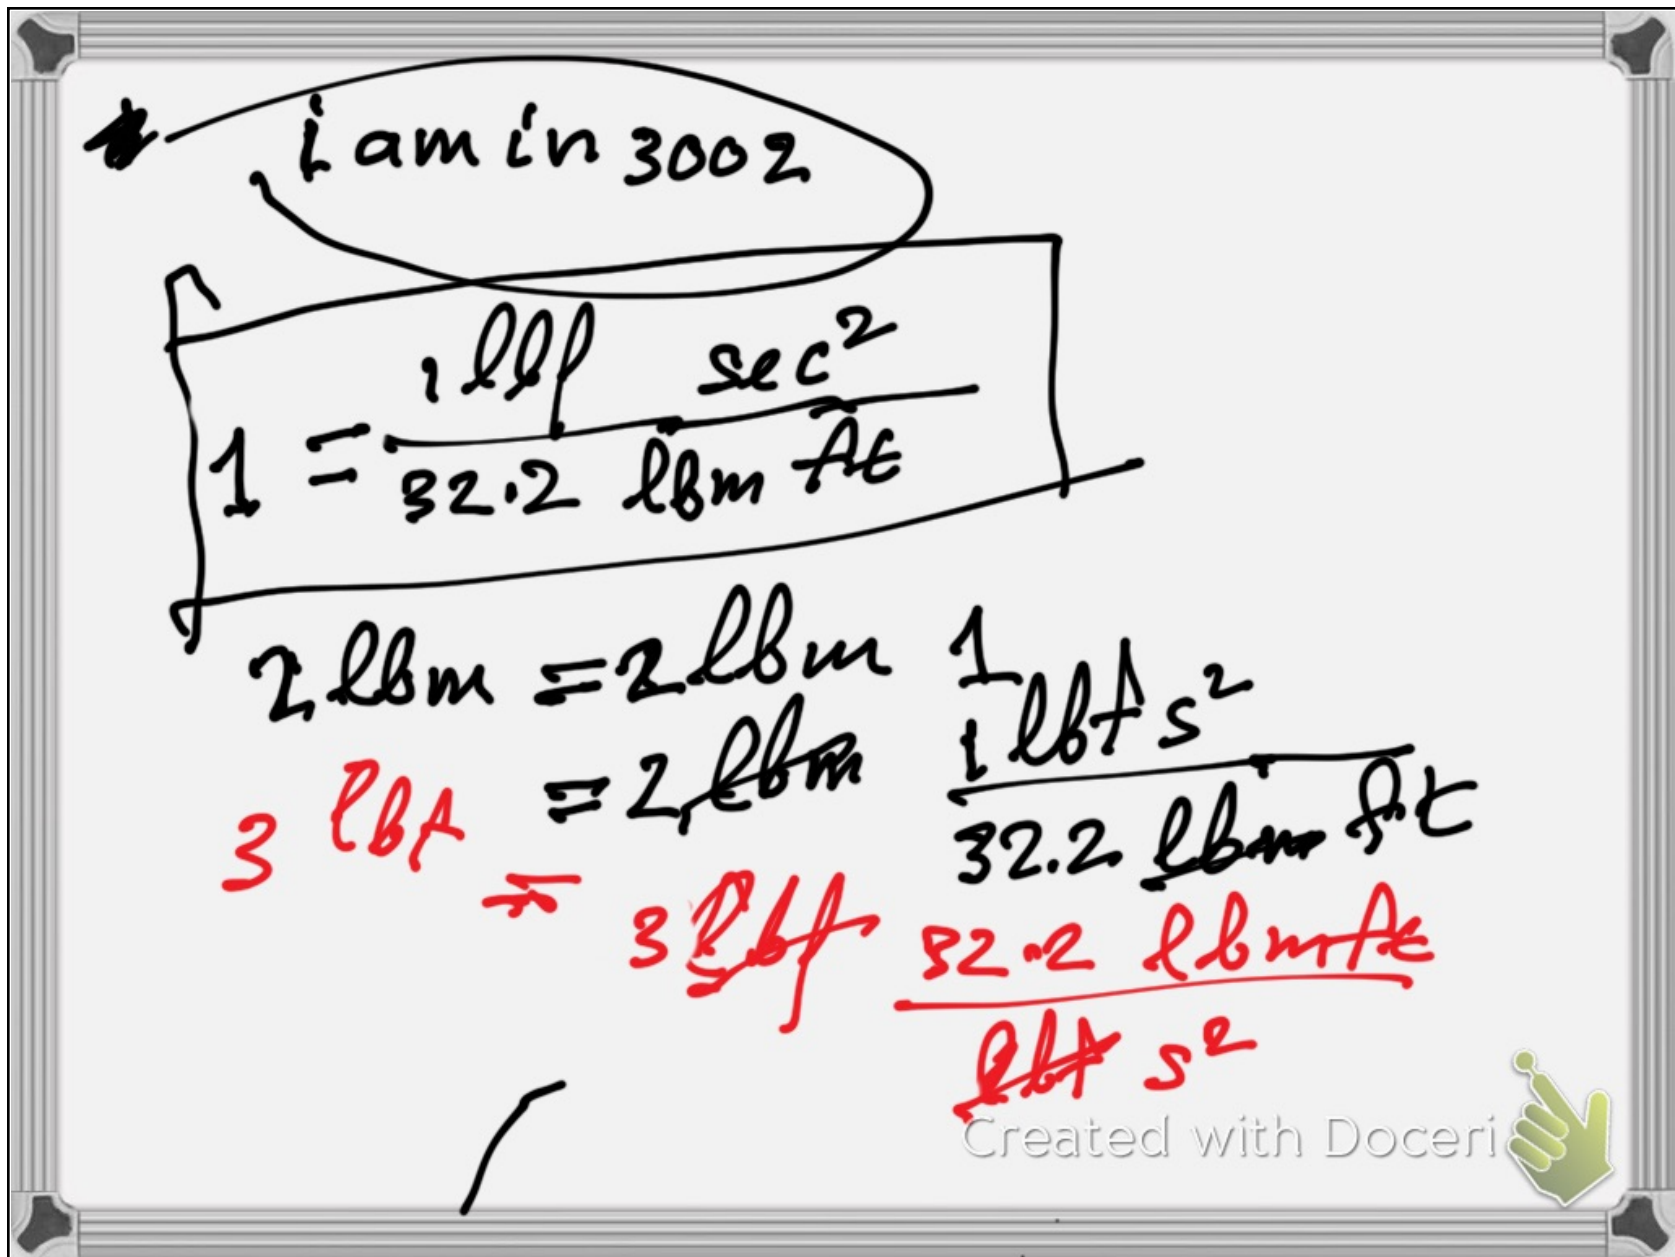 i am in 3002
1 = 1 lbf sec² / 32.2 lbm ft
2 lbm = 2 lbm 1
= 2 lbm 1 lbf s² / 32.2 lbm ft
3 lbf = 3 lbf 32.2 lbm ft / lbf s²
Created with Doceri